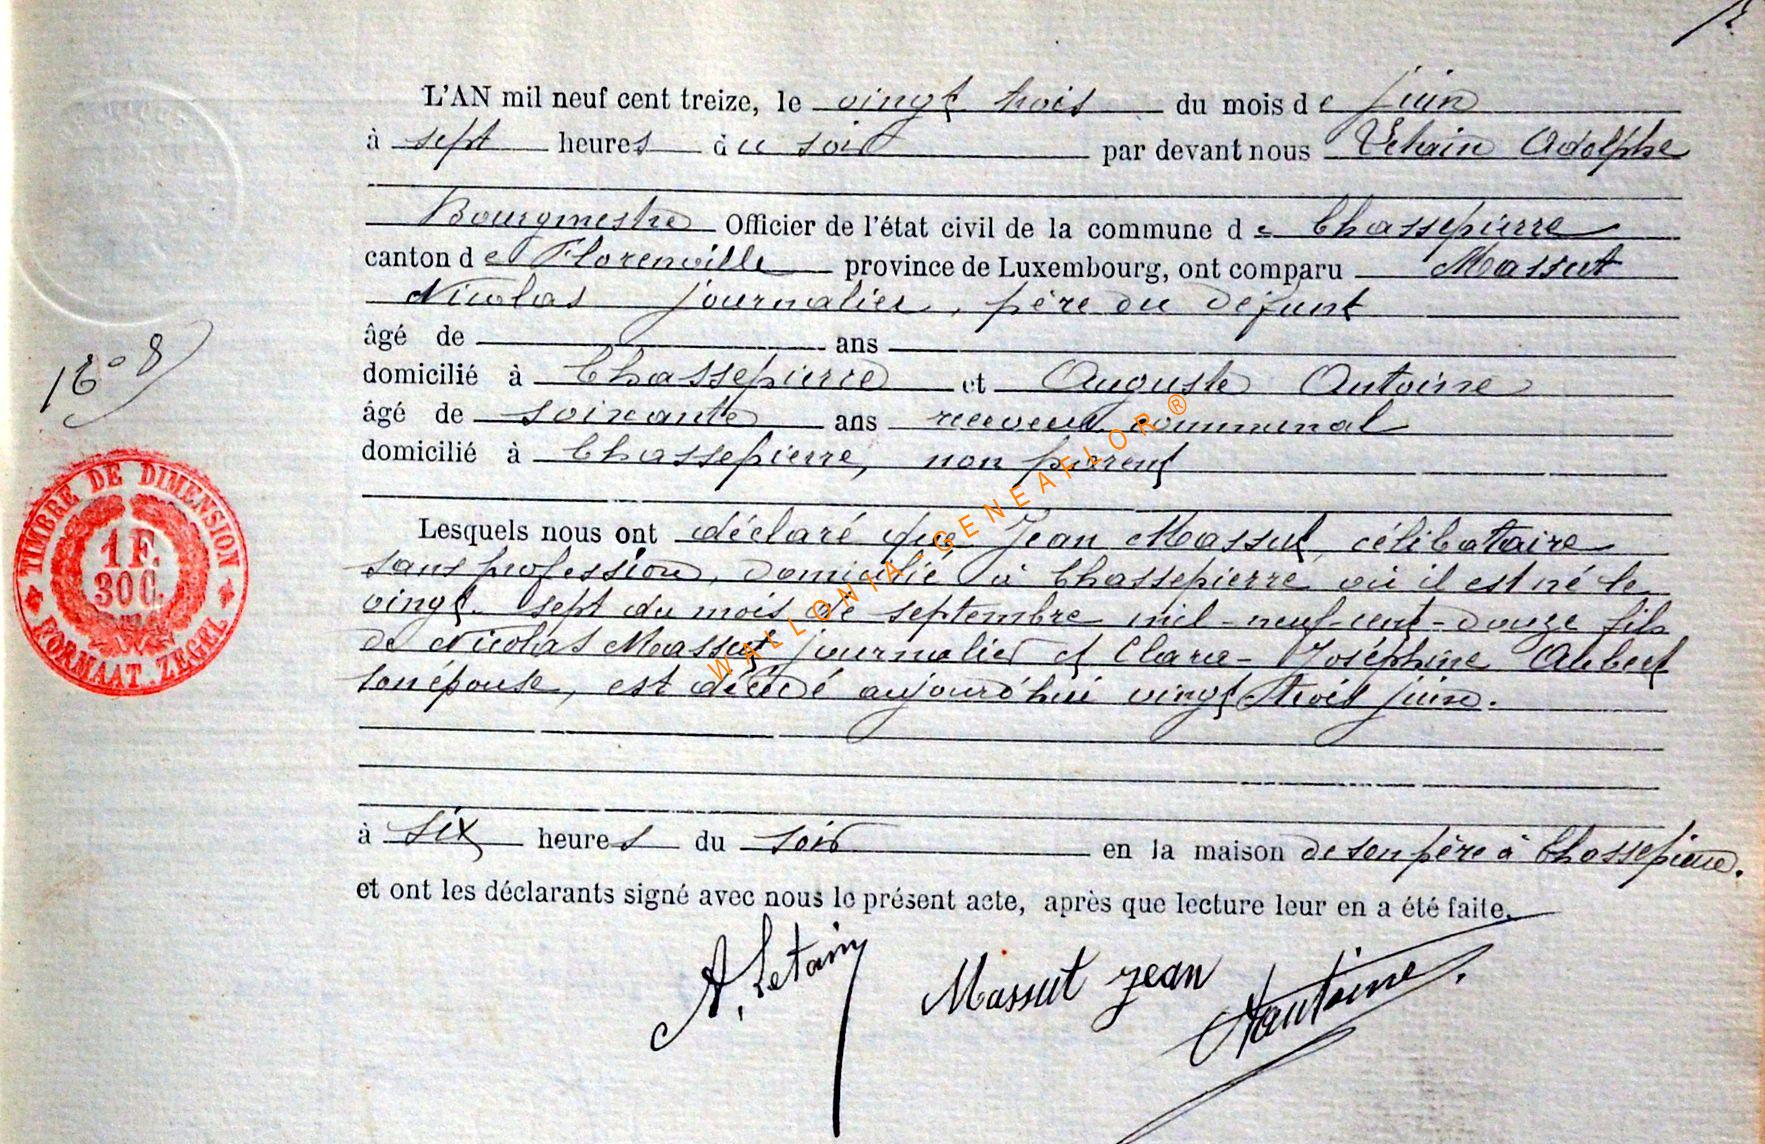 L'AN mil neuf cent treize, le vingt trois du mois de juin
à sept heures du soir par devant nous Adolphe
Bourgmestre Officier de l'état civil de la commune de Chassepierre
canton de Florenville province de Luxembourg, ont comparu Massut
Nicolas journalier, père du défunt
âgé de ans
domicilié à Chassepierre et Auguste Antoine
âgé de soixante ans receveur communal
domicilié à Chassepierre, non parent
Lesquels nous ont déclaré que Jean Massut, célibataire
sans profession, domicilié à Chassepierre où il est né le
vingt-sept du mois de septembre mil-neuf-cent-douze fils
de Nicolas Massut journalier et Clara-Joséphine Aubert
son épouse, est décédé aujourd'hui vingt trois juin.
à six heures du soir en la maison de son père à Chassepierre.
et ont les déclarants signé avec nous le présent acte, après que lecture leur en a été faite.
A. Letain Massut Jean Aantoine
No 8
TIMBRE DE DIMENSION
1 F.
30 C.
FORMAAT. ZEGEL
WALLONIA-GENEAFLOR ®